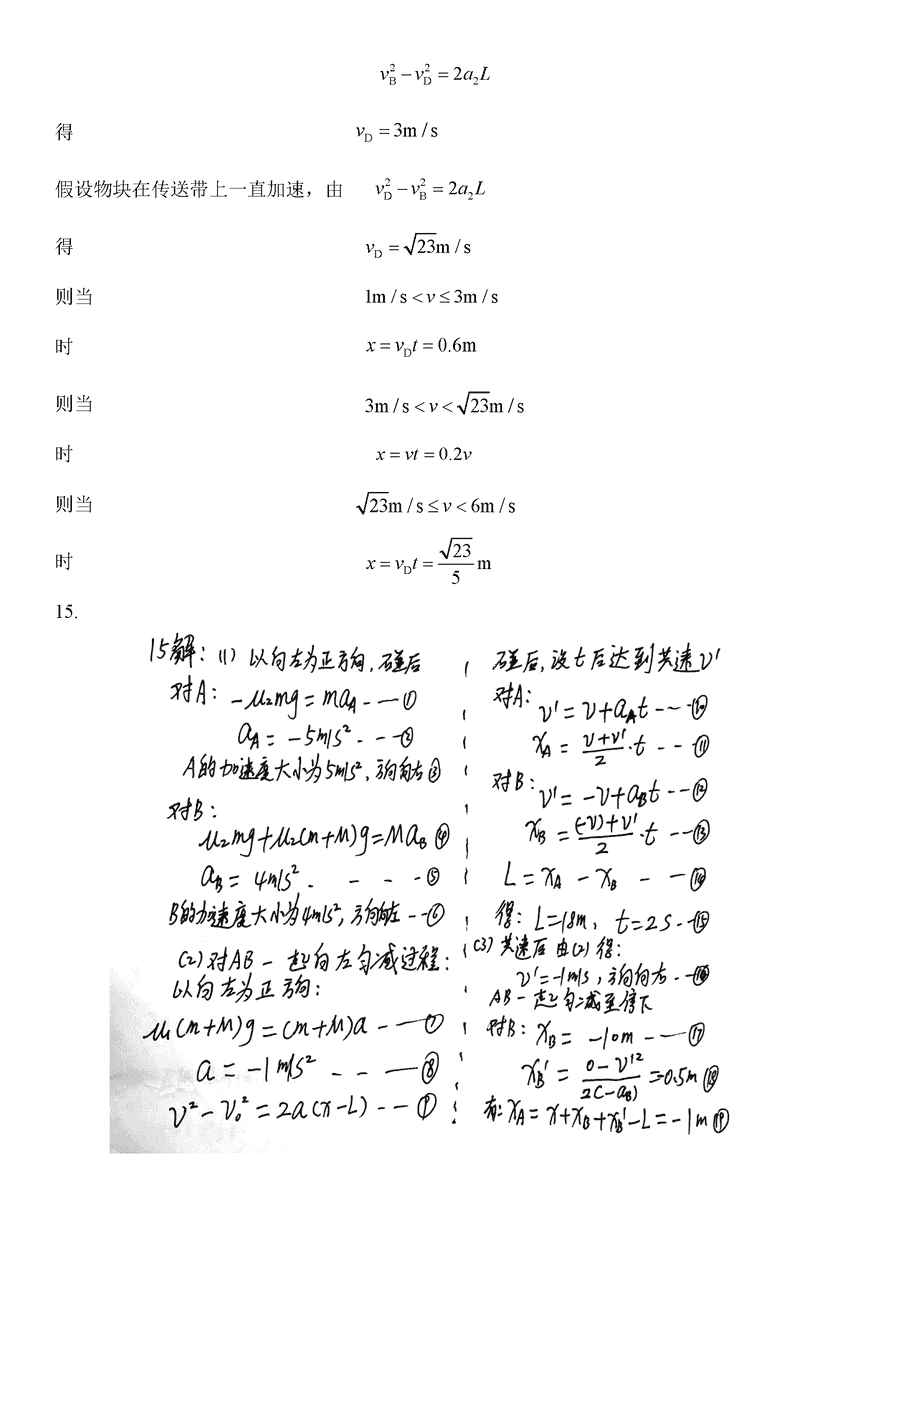 v_B^2 − v_D^2 = 2a_2L
得 v_D = 3m / s
假设物块在传送带上一直加速，由 v_D^2 − v_B^2 = 2a_2L
得 v_D = √23m / s
则当 1m / s < v ≤ 3m / s
时 x = v_Dt = 0.6m
则当 3m / s < v < √23m / s
时 x = vt = 0.2v
则当 √23m / s ≤ v < 6m / s
时 x = v_Dt = √23/5 m
15.
15解: (1) 以向左为正方向, 碰后
对A: -μ₂mg = ma_A --- ①
a_A = -5m/s² --- ②
A的加速度大小为5m/s², 方向向右③
对B:
μ₂mg+μ₁(m+M)g=Ma_B ④
a_B = 4m/s². - - - ⑤
B的加速度大小为4m/s², 方向向左--⑥
(2)对AB一起向左匀减过程:
以向左为正方向:
μ₁(m+M)g=(m+M)a --- ⑦
a = -1m/s² -- - ⑧
v²-v₀²=2a(x-L) --- ⑨
碰后, 设t后达到共速v'
对A: v'=v+a_At --- ⑩
x_A = (v+v')/2 · t -- ⑪
对B: v'=-v+a_Bt --⑫
x_B = ((-v)+v')/2 · t --⑬
L = x_A - x_B - - ⑭
得: L=18m, t=2s -⑮
(3) 共速后由(2)得:
v'=-1m/s, 方向向右 --⑯
AB一起匀减至停下
对B: x_B = -10m --- ⑰
x_B' = (0-v'²)/(2(-a_B)) =-0.5m ⑱
有: x_A = x+x_B+x_B'-L=-1m ⑲